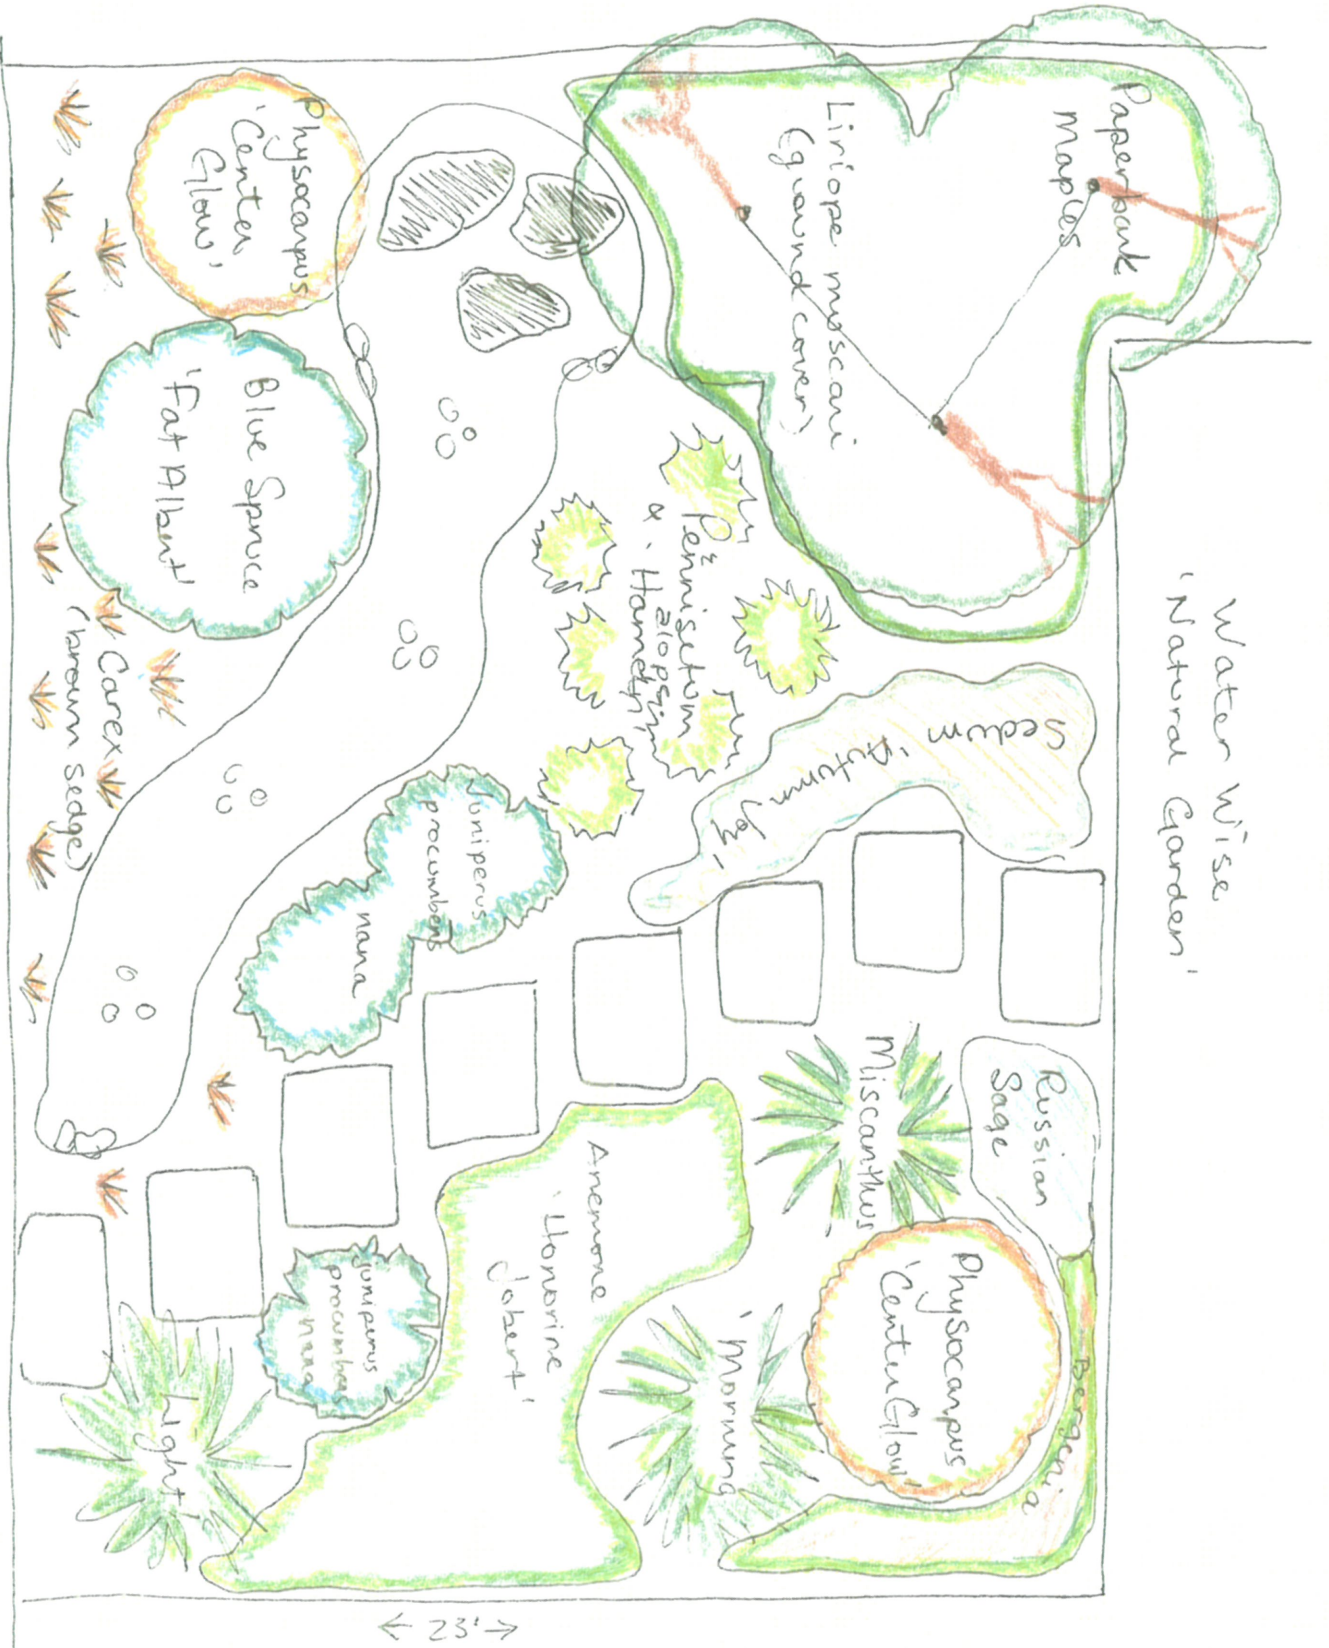 Water Wise
'Natural Garden'
Paperbark
Maples
Liriope moscari
(ground cover)
Physocarpus
'Center
Glow'
Blue Spruce
'Fat Albert'
Pennisetum
'Hameln'
Sedum 'Autumn Joy'
Carex
(brown sedge)
Juniperus
procumbens
nana
Russian
Sage
Miscanthus
'Morning
Light'
Physocarpus
'Center Glow'
Bergenia
Anemone
'Honorine
Jobert'
Juniperus
procumbens
nana
← 23' →